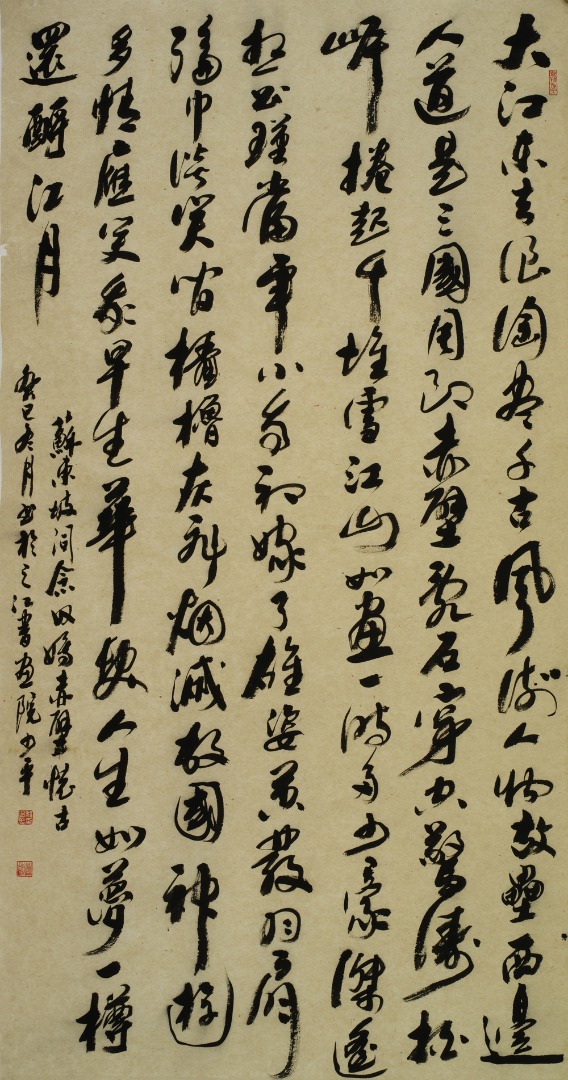 大江东去浪淘尽千古風流人物故壘西邊
人道是三國周郎赤壁亂石穿空驚濤拍
岸捲起千堆雪江山如畫一時多少豪傑遥
想公瑾當年小喬初嫁了雄姿英發羽扇
綸巾談笑間檣櫓灰飛烟滅故國神游
多情應笑我早生華髮人生如夢一樽
還酹江月
蘇東坡詞念奴嬌赤壁懷古
癸巳冬月书於之江書畫院少平